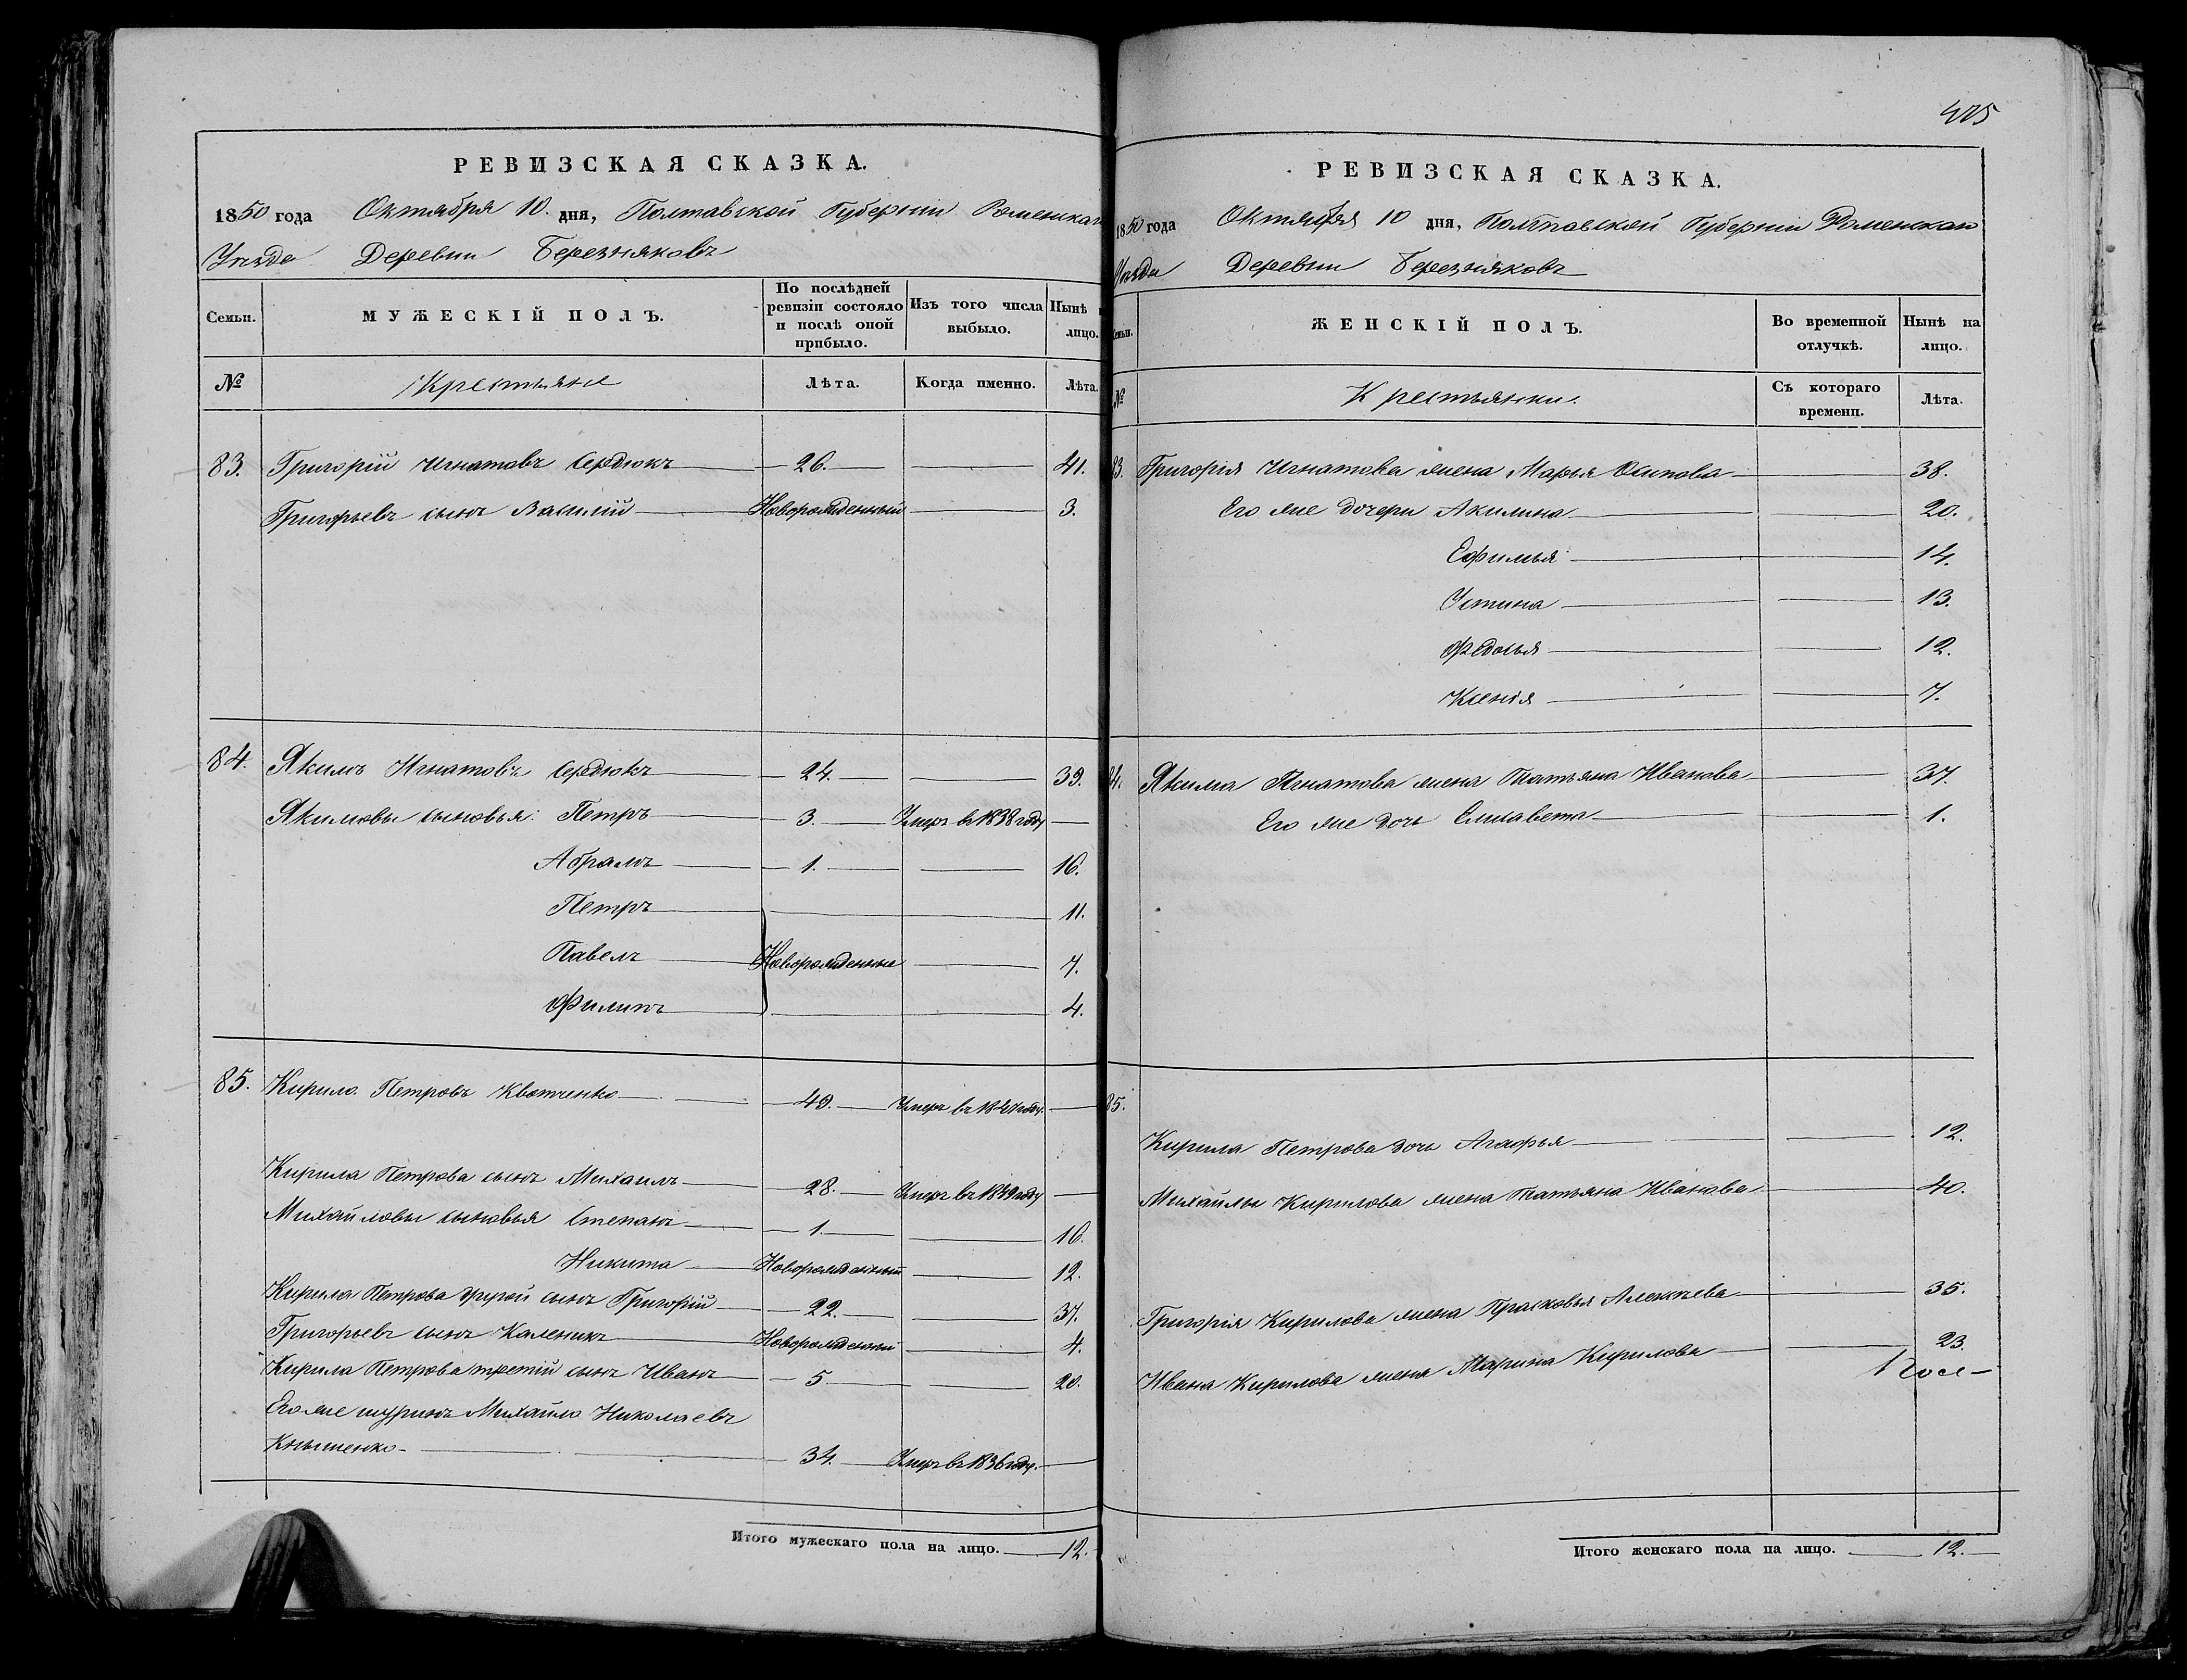 РЕВИЗСКАЯ СКАЗКА.
1850 года Октября 10. дня, Полтавской Губерніи Роменскаго
Уѣзда Деревни Березняковъ
Семьи.
МУЖЕСКІЙ ПОЛЪ.
По послѣдней ревизіи состояло и послѣ оной прибыло.
Изъ того числа выбыло.
Нынѣ на лицо.
№
Крестьяне
Лѣта.
Когда именно.
Лѣта.
83. Григорій Игнатовъ Сердюкъ 26. 41.
Григорьевъ сынъ Василій Новорожденный 3.
84. Якимъ Игнатовъ Сердюкъ 24. 39.
Якимовы сыновья: Петръ 3. Умеръ въ 1838 году
Абрамъ 1. 16.
Петръ 11.
Павелъ Новорожденные 7.
Филипъ 4.
85. Кирило Петровъ Квятченко 49. Умеръ въ 1847 году.
Кирила Петрова сынъ Михаилъ 28. Умеръ въ 1849 году
Михайловы сыновья Степанъ 1. 16.
Никита Новорожденный 12.
Кирила Петрова другой сынъ Григорій 22. 37.
Григорьевъ сынъ Каленикъ Новорожденный 4.
Кирила Петрова третій сынъ Иванъ 5. 20.
Его же шуринъ Михайло Николаевъ
Кнышенко 34. Умеръ въ 1836 году.
Итого мужескаго пола на лицо. 12.
475
РЕВИЗСКАЯ СКАЗКА.
1850 года Октября 10 дня, Полтавской Губерніи Роменскаго
Уѣзда Деревни Березняковъ
Семьи.
ЖЕНСКІЙ ПОЛЪ.
Во временной отлучкѣ.
Нынѣ на лицо.
№
Крестьянки.
Съ котораго времени.
Лѣта.
83. Григорія Игнатова жена Марья Осипова 38.
Его же дочери Акилина 20.
Ефимья 14.
Устина 13.
Федосья 12.
Ксенія 7.
84. Якима Игнатова жена Татьяна Иванова 37.
Его же дочь Елисавета 1.
85.
Кирила Петрова дочь Агафья 12.
Михайлы Кирилова жена Татьяна Иванова 40.
Григорія Кирилова жена Прасковья Алексѣева 35.
Ивана Кирилова жена Марина Кирилова 23.
Итого женскаго пола на лицо. 12.